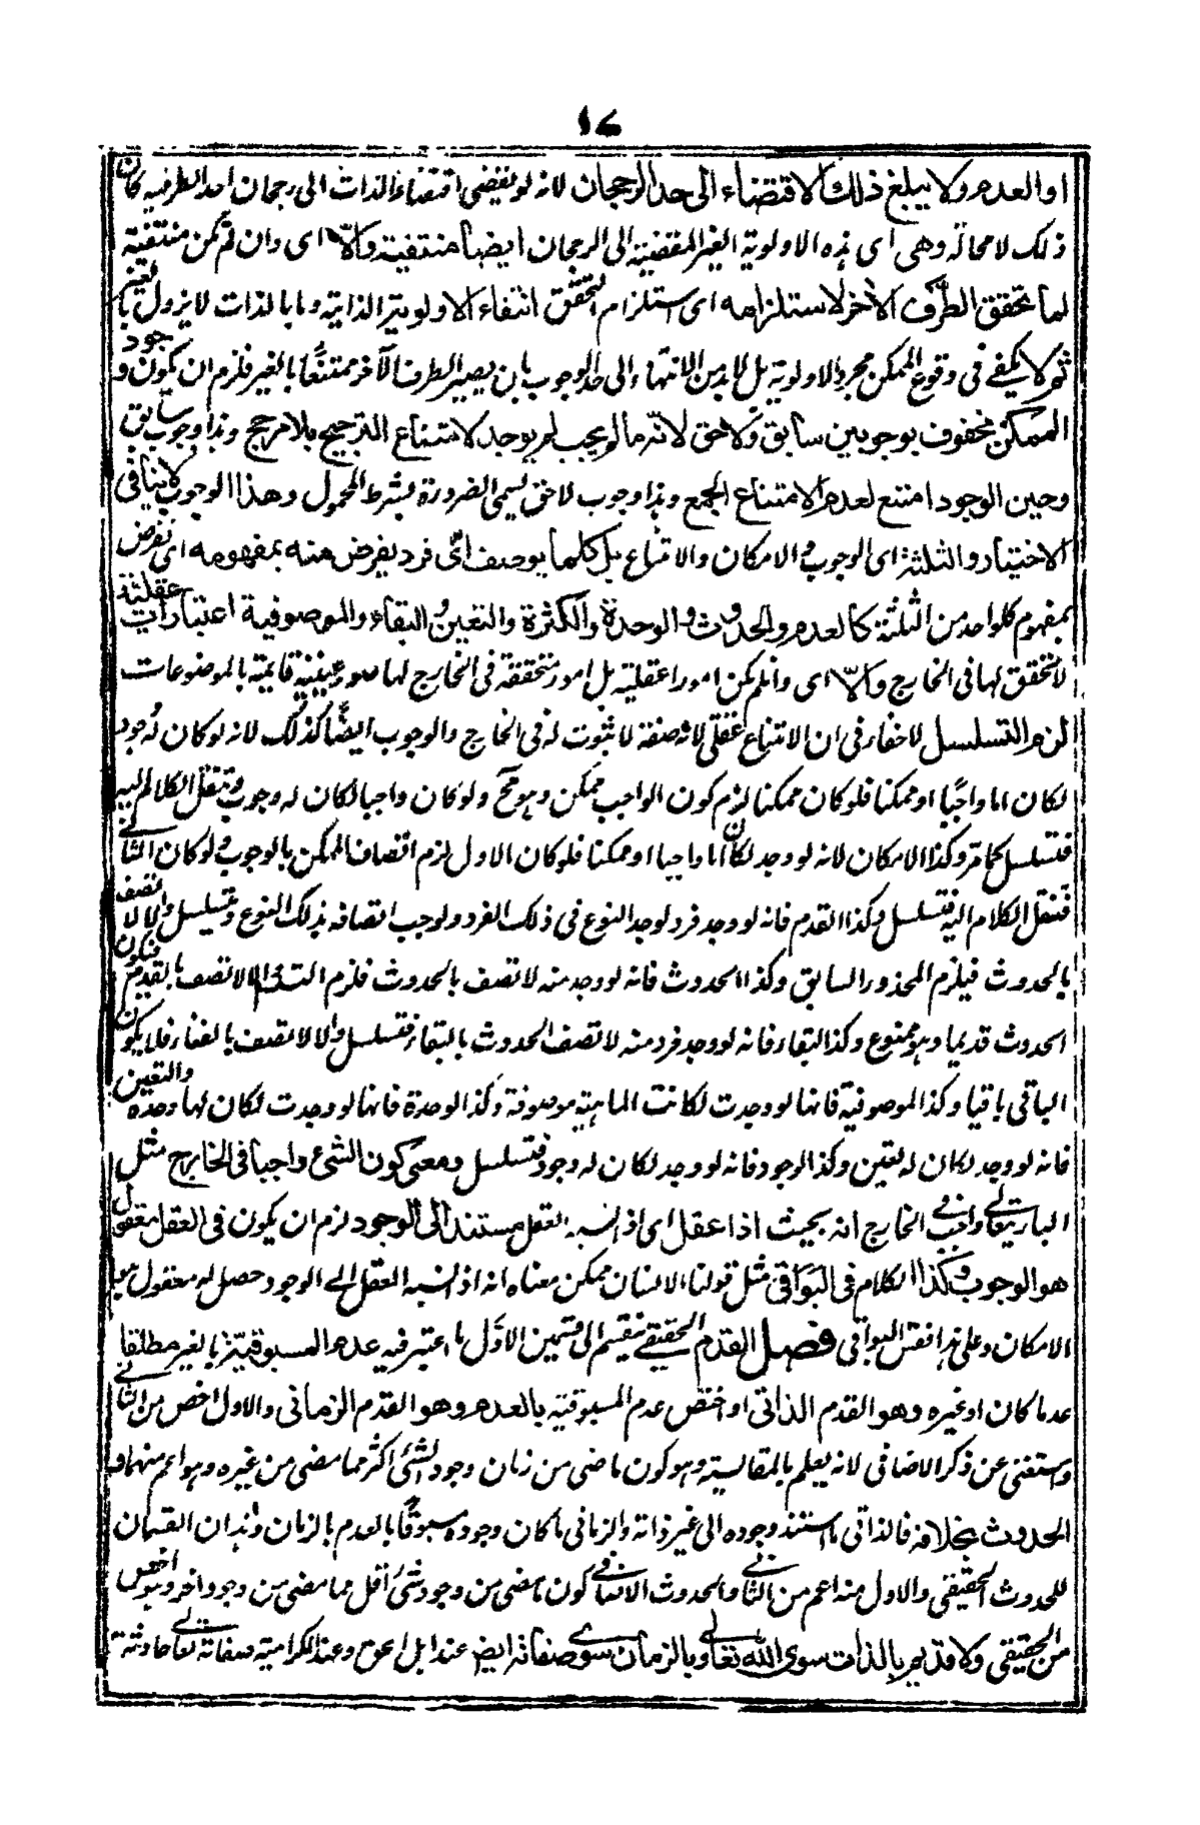 ١٧
او العدم ولا يبلغ ذلك الاقتضاء الى حد الرجحان لانه لو يقضى اقتضاء الذات الى رجحان احد الطرفيه كان
ذلك لا محالة وهى اى هذه الاولوية الغير المفضية الى الرجحان ايضا منتفية والا اى وان لم تكن منتفية
لما تحقق الطرف الآخر لاستلزامه اى استلزام التحقق انتفاء الاولوية الذاتية وما بالذات لا يزول بالغير
ثم لا يكفى فى وقوع الممكن مجرد الاولوية بل لابد من الانتهاء الى حد الوجوب بان يصير الطرف الآخر ممتنعًا بالغير فلزم ان يكون وجود
الممكن محفوف بوجوبين سابق ولاحق لانه مالم يجب لم يوجد لامتناع الترجيح بلا مرجح وهذا وجوب سابق
وحين الوجود امتنع لعدم الامتناع الجمع وهذا وجوب لاحق يسمى الضرورة بشرط المحمول وهذا الوجوب لا ينافى
الاختيار والثلثة اى الوجوب والامكان والامتناع بل كلما يوصف اىّ فرد يفرض منه بمفهومه اى نفرض
بمفهوم كلواحد من الثلثة كالعدم والحدوث والوحدة والكثرة والتعين والبقاء والموصوفية اعتبارات عقلية
لا تحقق لها فى الخارج والا اى وان لم يكن امورا عقلية بل امور متحققة فى الخارج لها صور عينية قايمة بالموضوعات
لزم التسلسل لاخفاء فى ان الامتناع عقلى لانه صفة لا ثبوت له فى الخارج والوجوب ايضًا كذلك لانه لو كان له وجود
لكان اما واجبًا او ممكنا فلو كان ممكنا لزم كون الواجب ممكن وهو مح ولو كان واجبا لكان له وجوب وتنقل الكلام اليه
فتسلسل كما مر وكذا الامكان لانه لو وجد لكان اما واجبا او ممكنا فلو كان الاول لزم اتصاف الممكن بالوجوب ولو كان الثانى
فتنقل الكلام اليه فتسلسل وكذا القدم فانه لو وجد فرد لوجد النوع فى ذلك الفرد ولوجب اتصافه بذلك النوع وتسلسل والا لاتصف
بالحدوث فيلزم المحذور السابق وكذا الحدوث فانه لو وجد منه لاتصف بالحدوث فلزم التس والا لاتصف بالقدم فيكون
الحدوث قديما وهو ممنوع وكذا البقاء فانه لو وجد فرد منه لاتصف الحدوث بالبقاء فتسلسل والا لاتصف بالفناء فلا يكون
الباقى باقيا وكذا الموصوفية فانها لو وجدت لكانت الماهية موصوفة وكذا الوحدة فانها لو وجدت لكان لها وحدة والتعين
فانه لو وجد لكان له تعين وكذا الوجود فانه لو وجد لكان له وجود فتسلسل ومعنى كون الشئ واجبا فى الخارج مثل
البارى تعالى واجب فى الخارج انه بحيث اذا عقل اى اذا نسبه العقل مستندا الى الوجود لزم ان يكون فى العقل معقول
هو الوجوب وكذا الكلام فى البواقى مثل قولنا الانسان ممكن معناه انه اذا نسبه العقل الى الوجود حصل له معقول هو
الامكان وعلى هذا فقس البواقى فصل القدم الحقيقى ينقسم الى قسمين الاول ما اعتبر فيه عدم المسبوقية بالغير مطلقا
عدما كان او غيره وهو القدم الذاتى او اختص عدم المسبوقية بالعدم وهو القدم الزمانى والاول اخص من الثانى
واستغنى عن ذكر الاضافى لانه يعلم بالمقايسة وهو كون ما مضى من زمان وجود الشئ اكثر مما مضى من غيره وهو اعم منهما و
الحدوث بخلافه فالذاتى ما استند وجوده الى غير ذاته والزمانى ما كان وجوده مسبوقًا بالعدم بالزمان وهذان القسمان
للحدوث الحقيقى والاول منه اعم من الثانى والحدوث الاضافى كون ما مضى من وجود شئ اقل مما مضى من وجود آخر وهو اخص
من الحقيقى ولا قديم بالذات سوى الله تعالى وبالزمان سوى صفاته ايض عند اهل الحق وعند الكرامية صفاته تعالى حادثة